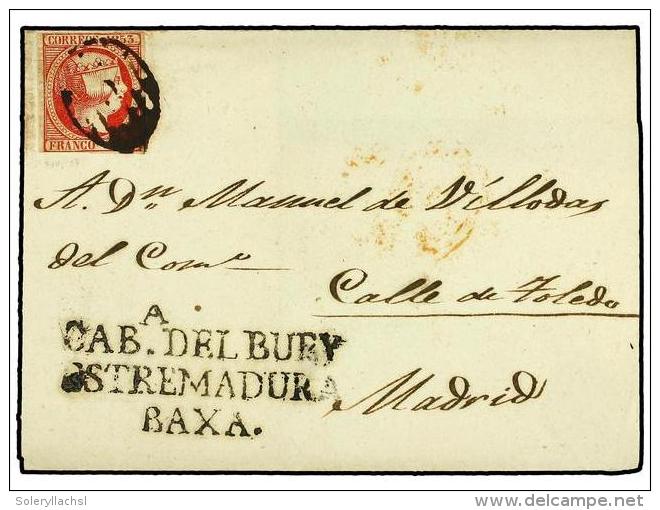 CORREOS 1853.
FRANCO
A. Dn Manuel de Villodas
del Como
Calle de Toledo
A
CAB. DEL BUEY
ESTREMADURA
BAXA.
Madrid
Soleryllachsl
delcampe.net